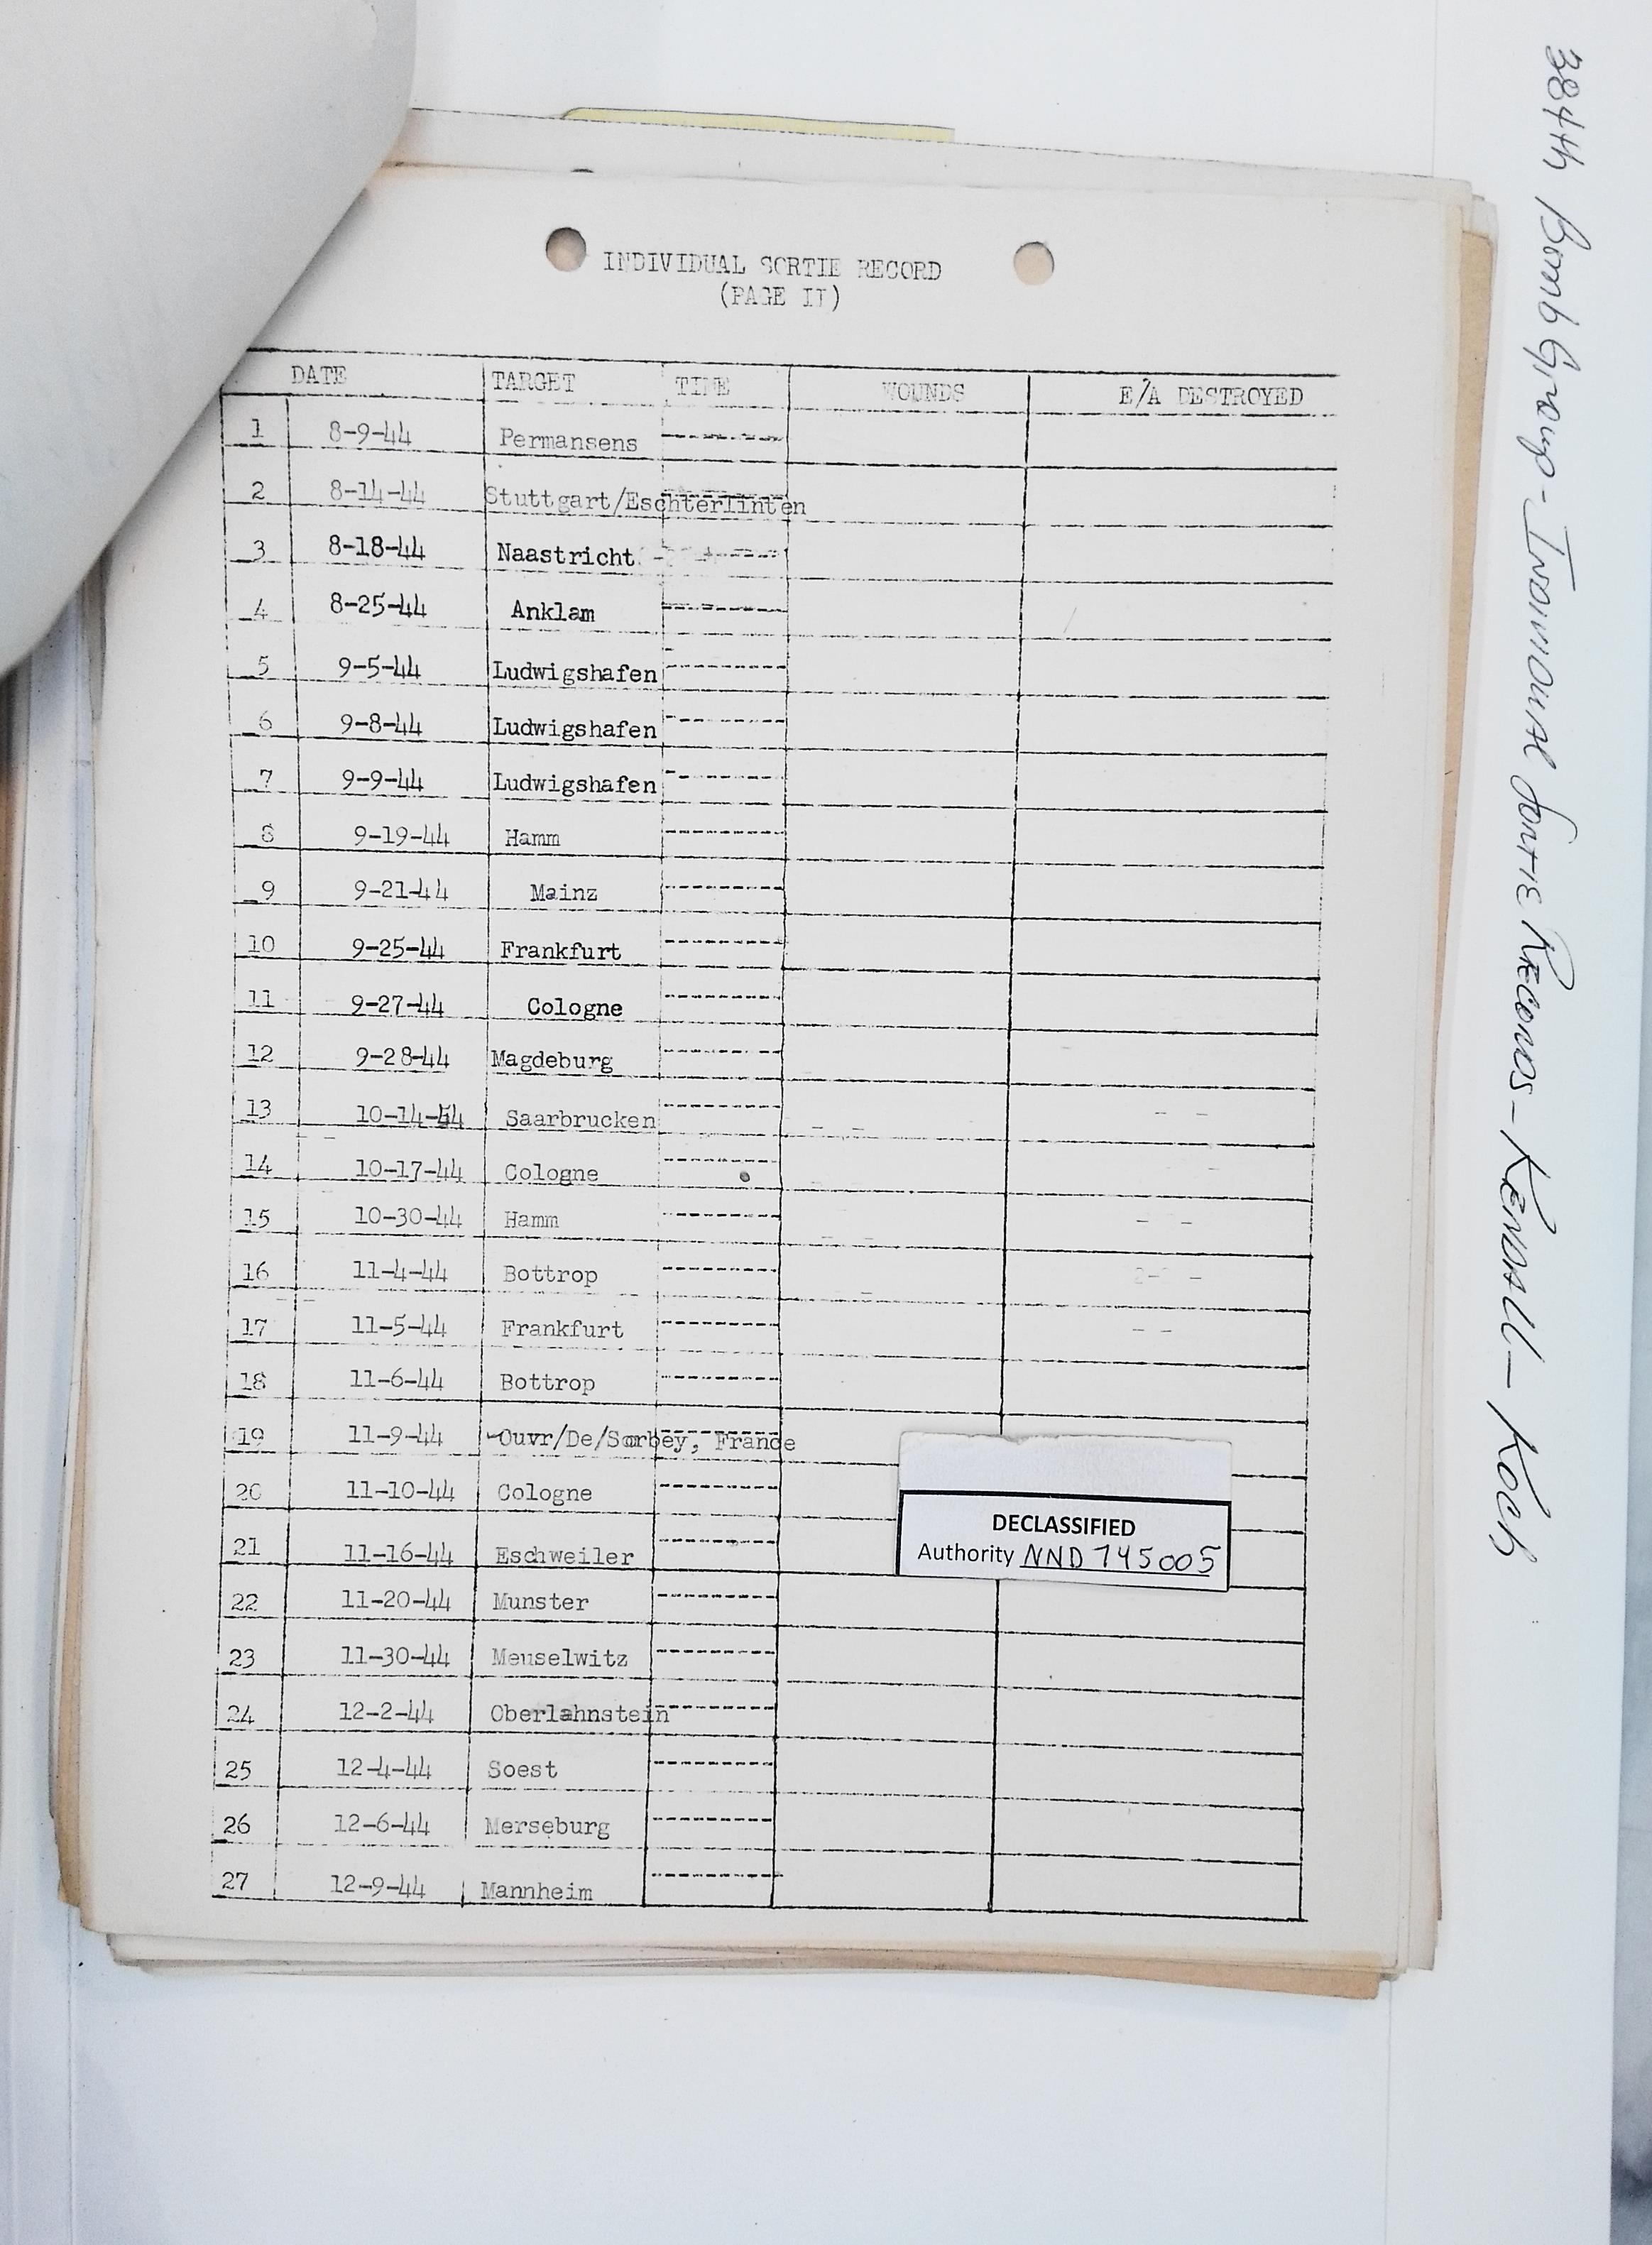 INDIVIDUAL SORTIE RECORD
(PAGE II)
DATE TARGET TIME WOUNDS E/A DESTROYED
1 8-9-44 Permansens ----------
2 8-14-44 Stuttgart/Eschterlinten ----------
3 8-18-44 Naastricht ----------
4 8-25-44 Anklam ----------
5 9-5-44 Ludwigshafen ----------
6 9-8-44 Ludwigshafen ----------
7 9-9-44 Ludwigshafen ----------
8 9-19-44 Hamm ----------
9 9-21-44 Mainz ----------
10 9-25-44 Frankfurt ----------
11 9-27-44 Cologne ----------
12 9-28-44 Magdeburg ----------
13 10-14-44 Saarbrucken ----------
14 10-17-44 Cologne ----------
15 10-30-44 Hamm ----------
16 11-4-44 Bottrop ----------
17 11-5-44 Frankfurt ----------
18 11-6-44 Bottrop ----------
19 11-9-44 Ouvr/De/Sorbey, France ----------
20 11-10-44 Cologne ----------
21 11-16-44 Eschweiler ----------
22 11-20-44 Munster ----------
23 11-30-44 Meuselwitz ----------
24 12-2-44 Oberlahnstein ----------
25 12-4-44 Soest ----------
26 12-6-44 Merseburg ----------
27 12-9-44 Mannheim ----------
DECLASSIFIED
Authority NND 745005
384th Bomb Group - Individual Sortie Records - Kendall - Koch